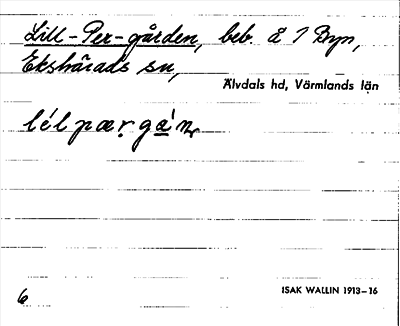 Lill-Per-gården, beb. å 1 Byn,
Ekshärads sn,
Älvdals hd, Värmlands län
lélpær̩gá̠n,
6
ISAK WALLIN 1913–16